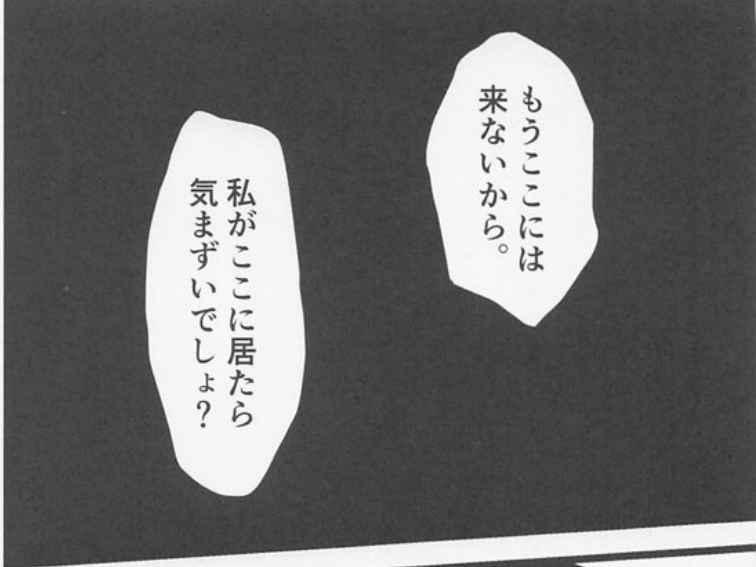 もうここには
来ないから。
私がここに居たら
気まずいでしょ？